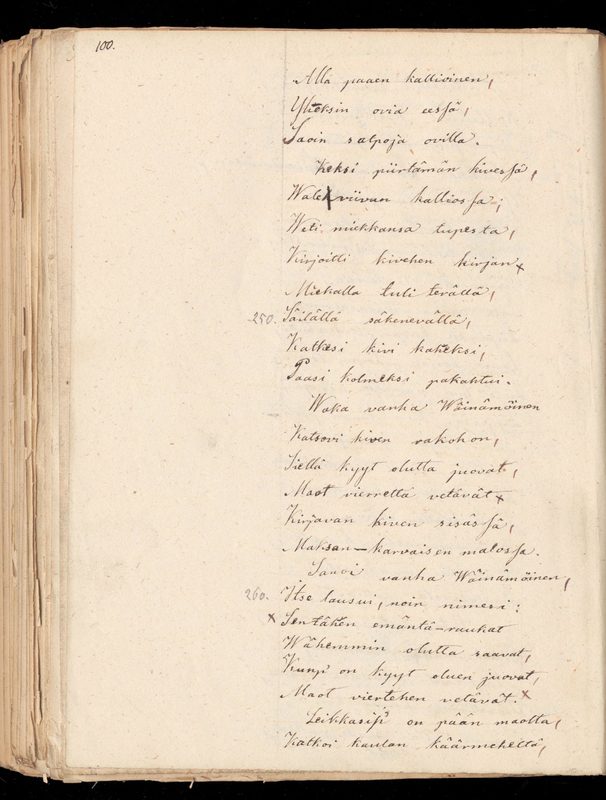 100.
Alla paaen kallioinen,
Yheksin ovia eessä,
Saoin salpoja ovilla.
Keksi piirtämän kivessä,
Wale viivan kalliossa;
Weti miekkansa tupesta,
Kirjoitti kivehen kirjan x
Miekalla tuli terällä,
250. Säilällä säkenevällä,
Katkesi kivi kaheksi,
Paasi kolmeksi pakahtui.
Waka vanha Wäinämöinen
Katsovi kiven rakohon,
Siellä kyyt olutta juovat,
Maot vierrettä vetävät x
Kirjavan kiven sisässä,
Maksan-karvaisen malossa.
Sanoi vanha Wäinämöinen,
260. Itse lausui, noin nimesi:
x Sentähen emäntä-raukat
Wähemmin olutta saavat,
Kunp' on kyyt oluen juovat,
Maot viertehen vetävät. x
Leikkasip' on pään maolta,
Katkoi kaulan käärmeheltä,